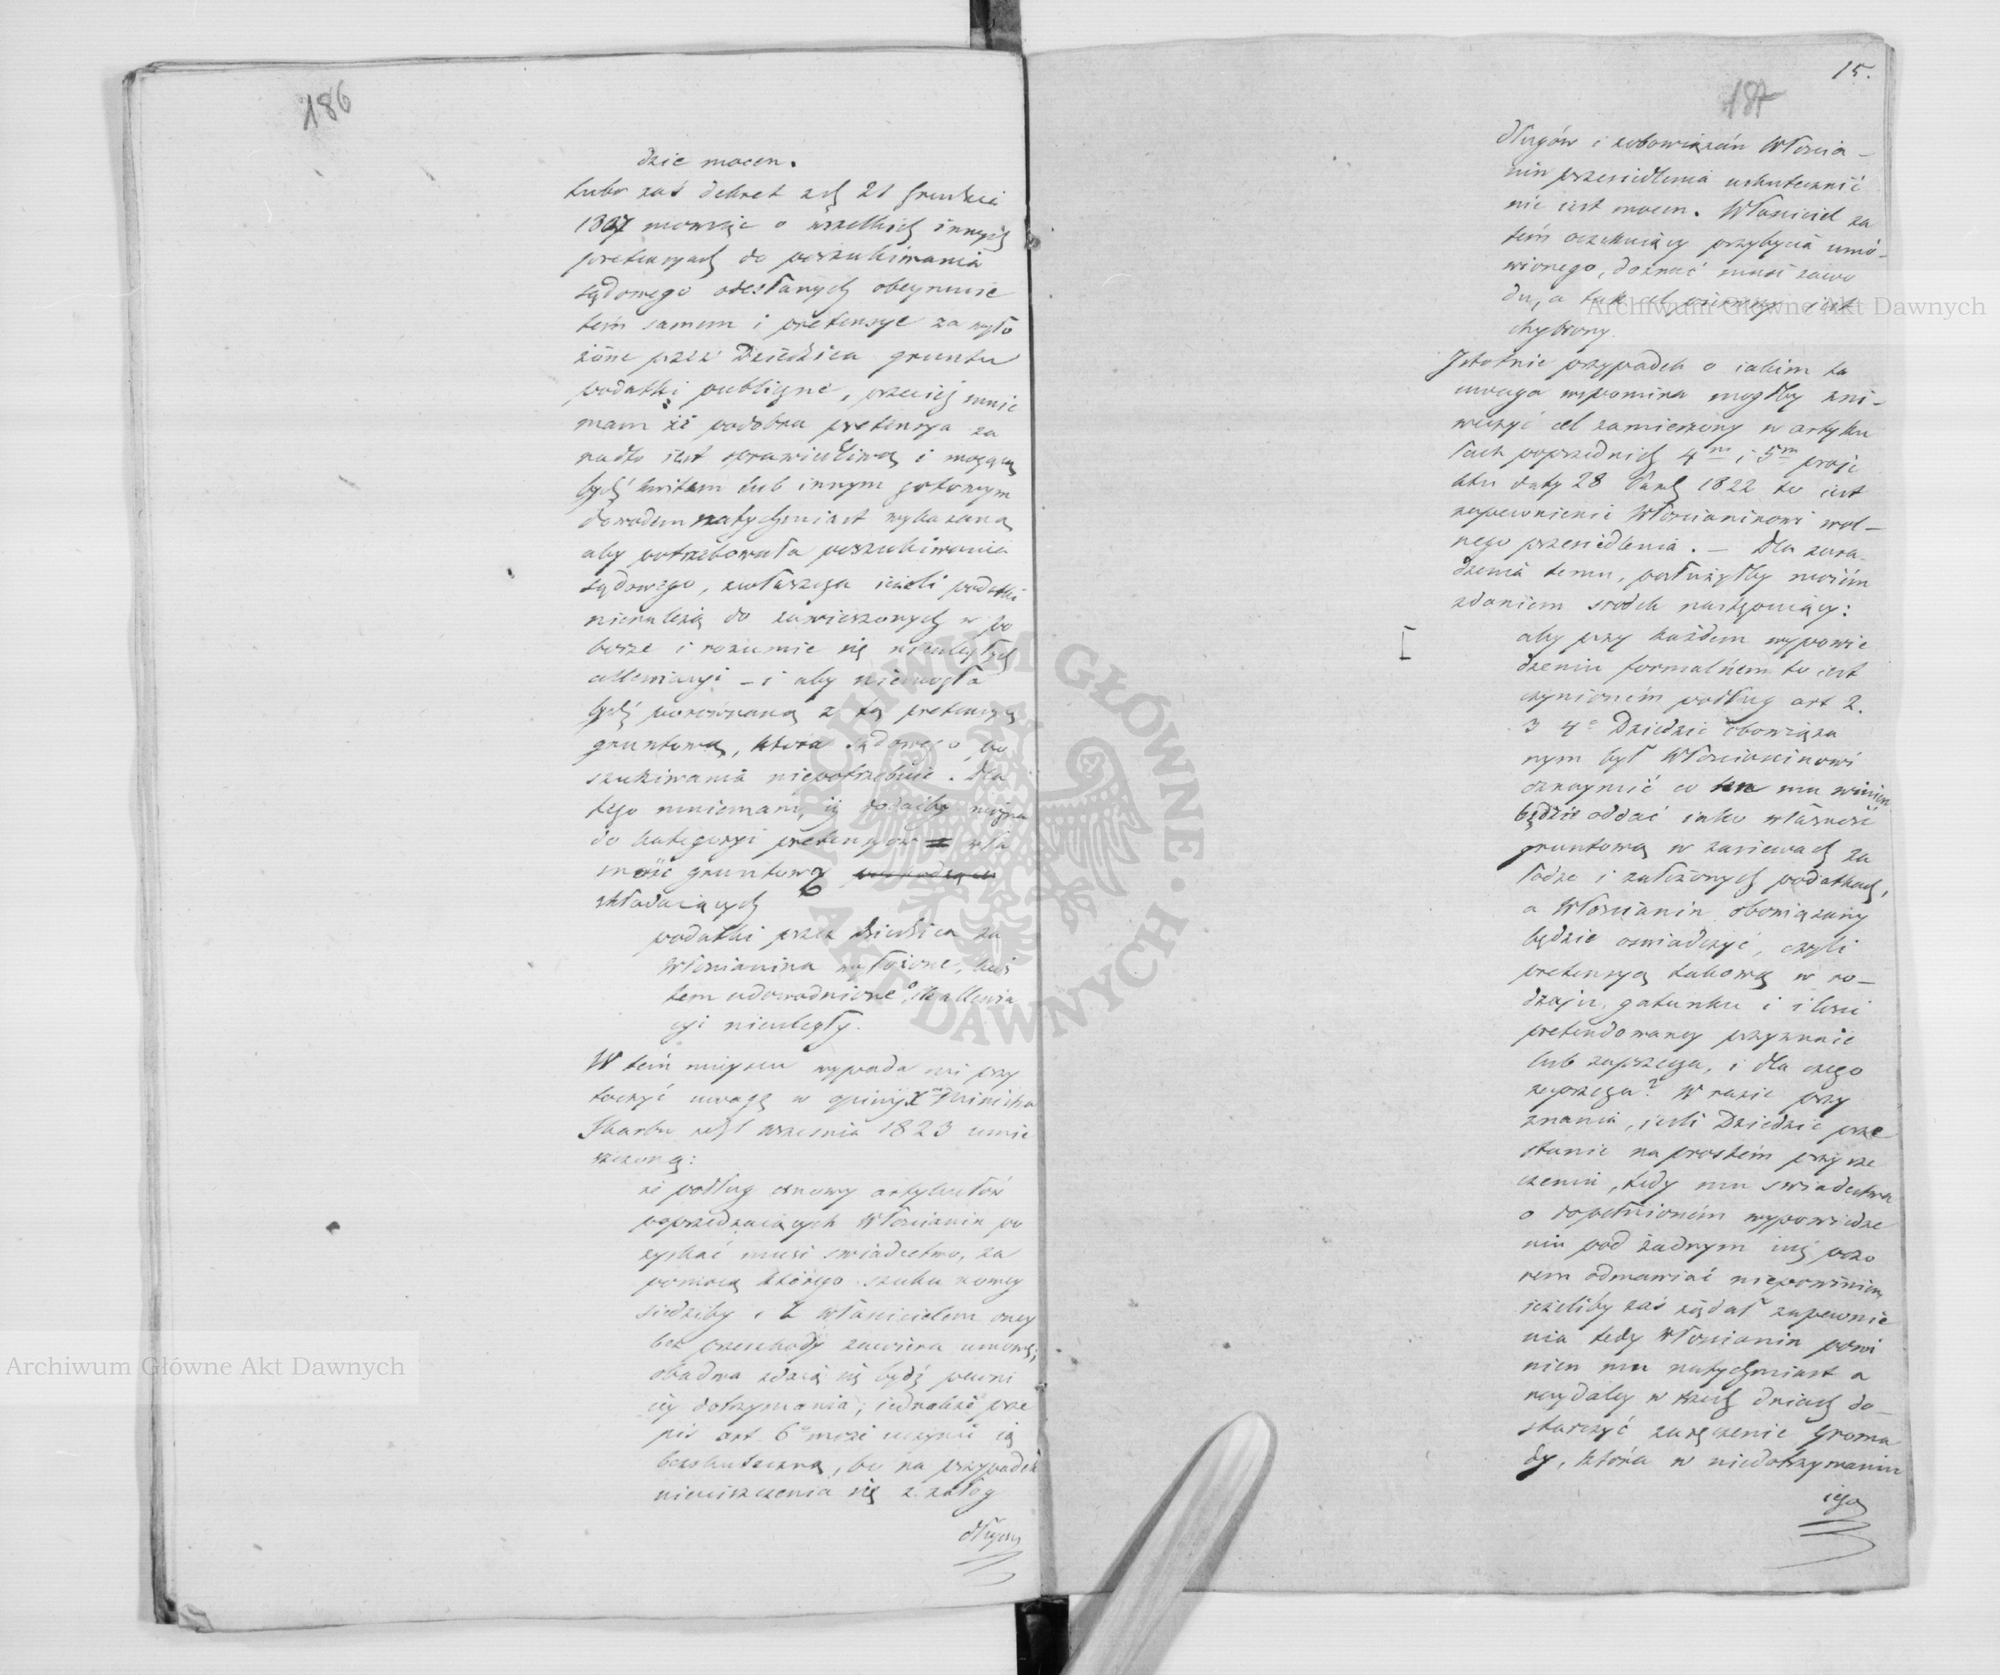 186
dzie mocen.
Lubo zaś dekret z dg 21 Grudnia
1807 mowiąc o wszelkich innych
pretensyach do poszukiwania
sądowego odesłanych obeymuie
tém samem i pretensye za wyło
żone przez Dziedzica gruntu
podatki publiczne, przecięż mnie
mam iż podobna pretensya za
nadto iest sprawiedliwą i mogącą
bydź kwitem lub innym gotowym
dowodem natychmiast wykazaną
aby potrzebowała poszukiwania
sądowego, zwłaszcza ieżeli podatki
nienależą do zawieszonych w po
borze i rozumie się nieuległych
allewiacyi – i aby niemogła
bydź porównaną z tą pretensyą
gruntową, która sądowego po
szukiwania niepotrzebuie. Dla
tego mniemam, iż dodaćby można
do kategoryi pretensyów wła
sność gruntową
składaiących
podatki przez dziedzica za
Włościanina wyłożone, kwi
tem udowodnione, a allewia
cyi nieuległy.
W tém mieyscu wypada mi przy
toczyć uwagę w opinii Xcia Ministra
Skarbu z d 1 września 1823 umie
szczoną:
iż podług osnowy artykułów
poprzedzaiących Włościanin po
zyskać musi swiadectwo, za
pomocą którego szuka nowey
siedziby i z właścicielem oney
bez przeszkody zawiera umowę;
obadwa zdaią się bydź pewni
iéy dotrzymania; iednakże prze
pis art. 6º może uczynić ią
bezskuteczną, bo na przypadek
nieuiszczenia się z załog
długów
15.
187
długów i zobowiązań Włościa–
nin przesiedlenia uskutecznić
nie iest mocen. Właściciel za
tém oczekuiący przybycia umó–
wionego, doznać musi zawo
du, a tak cel pierwszy iest
chybiony.
Istotnie przypadek o iakim ta
uwaga wspomina mógłby zni–
weczyć cel zamierzony w artyku
łach poprzednich 4m i 5m proje
ktu daty 28 1822 to iest
zapewnienie Włościaninowi wol–
nego przesiedlenia. – Dla zara–
dzenia temu, posłużyłby moiém
zdaniem srodek następuiący:
aby przy każdem wypowie
dzeniu formalném to iest
czynioném podług art 2.
3 4º Dziedzic obowiąza
nym był Włościaninowi
oznaymić co mu winien
będzie oddać iako własność
gruntową w zasiewach za
łodze i założonych podatkach,
a Włościanin obowiązany
będzie oswiadczyć, czyli
pretensyą takową w ro–
dzaju, gatunku i ilości
pretendowaney przyznaie
lub zaprzecza, i dla czego
zaprzecza? W razie przy
znania, ieśli Dziedzic prze
stanie na prostém przyrze
czeniu, tedy mu swiadectwa
o dopełnioném wypowiedze
niu pod żadnym iuż pozo
rem odmawiać niepowinien,
ieżeliby zaś żądał zapewnie
nia tedy Włościanin powi
nien mu natychmiast a
naydaley w trzech dniach do–
starczyć zaręczenie Groma
dy, która w niedotrzymaniu
iego
Archiwum Główne Akt Dawnych
Archiwum Główne Akt Dawnych
ARCHIWUM GŁÓWNE AKT DAWNYCH